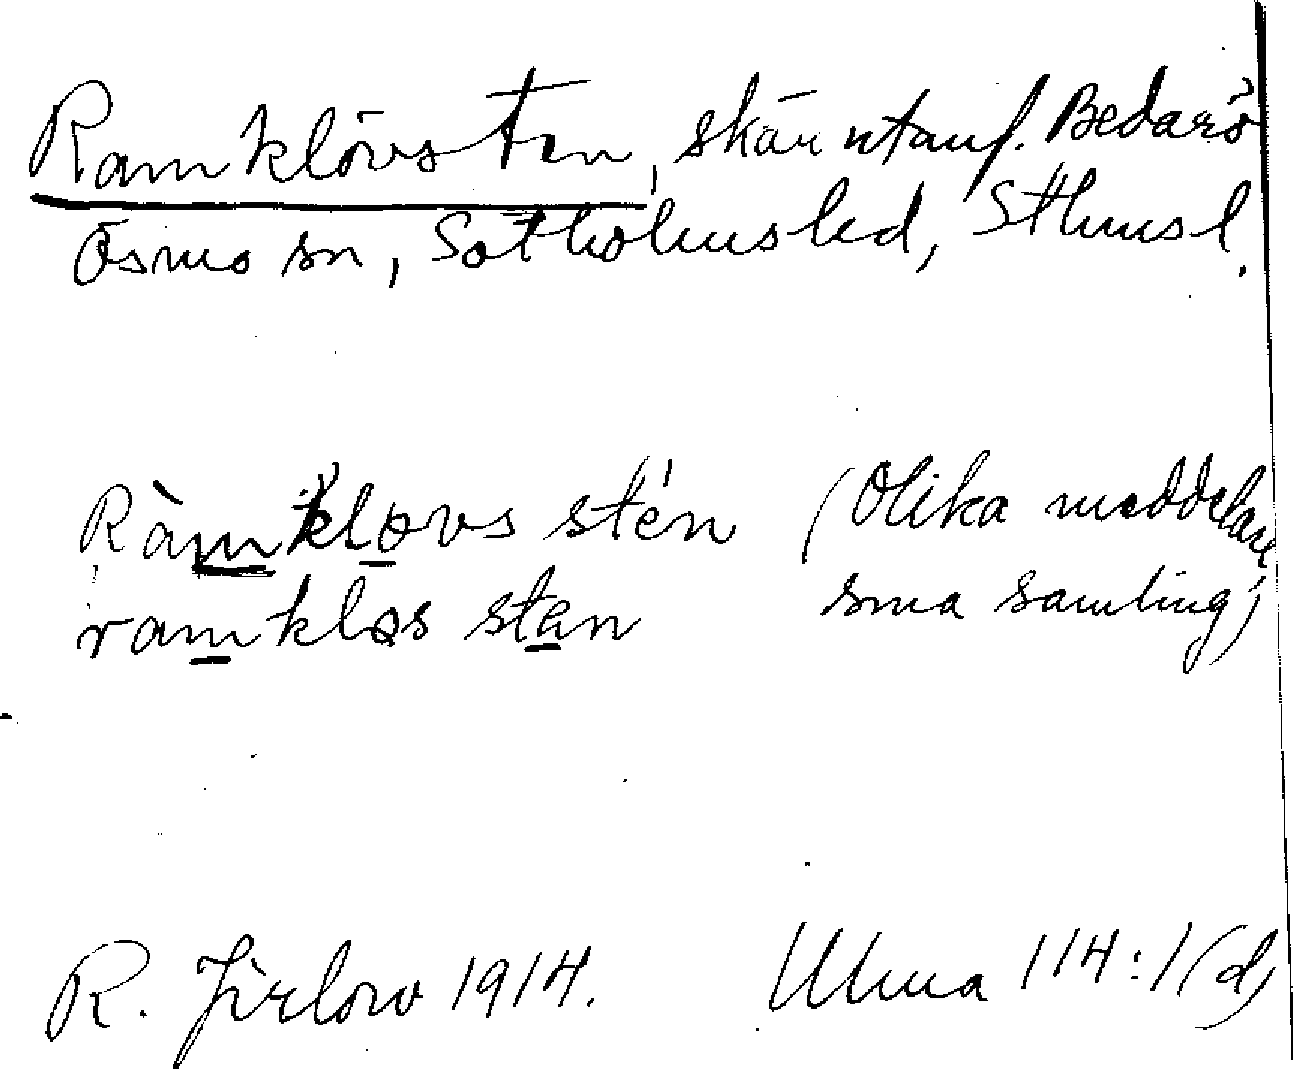 Ramklövsten, skär utanf. Bedarö
Ösmo sn, Sotholmshd, Sthmsl.
Ràmkløvs stén (Olika meddelare
ramkløs sten sma samling)
R. Jirlow 1914. Ulma 114:1(d)